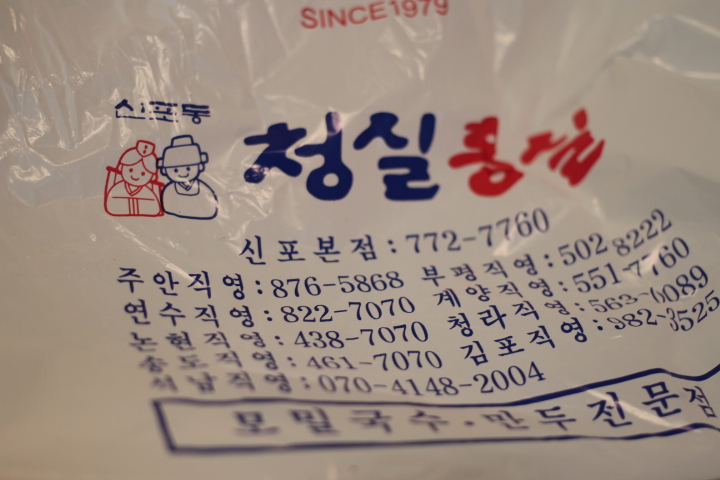 SINCE 1979
신포동
청실홍실
신포본점 : 772-7760
주안직영 : 876-5868 부평직영 : 502 8222
연수직영 : 822-7070 계양직영 : 551-7760
논현직영 : 438-7070 청라직영 : 563-0089
송도직영 : 461-7070 김포직영 : 982-3525
서남직영 : 070-4148-2004
모밀국수·만두전문점